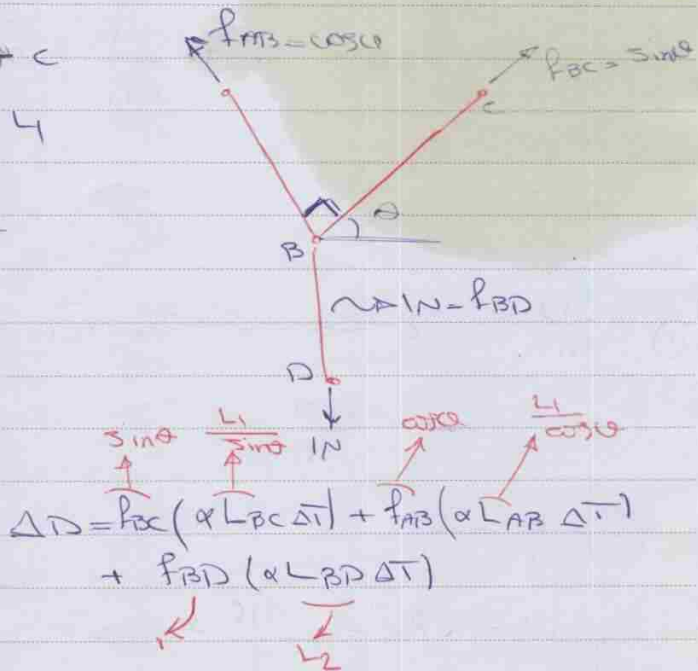 + C
4
f_AB = cosθ
f_BC = sinθ
C
θ
B
→ 1N = f_BD
D
1N
sinθ L₁/sinθ cosθ L₁/cosθ
ΔD = f_BC (α L_BC ΔT) + f_AB (α L_AB ΔT)
+ f_BD (α L_BD ΔT)
1 L₂